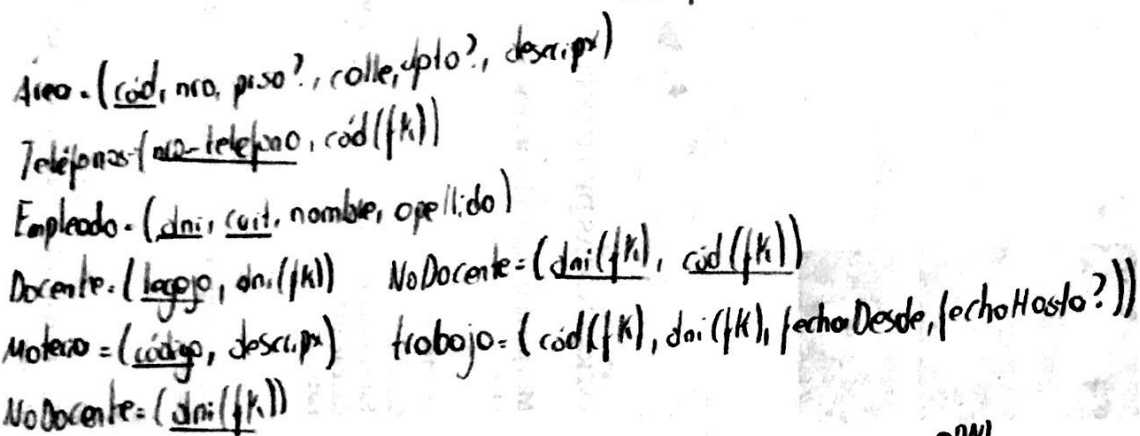 Área = (cód, nro, piso?, calle, dpto?, descripx)
Teléfonos = (nro-telefono, cód(fk))
Empleado = (dni, cuit, nombre, apellido)
Docente = (legajo, dni(fk)) NoDocente = (dni(fk), cód(fk))
Materia = (código, descripx) trabajo = (cód(fk), dni(fk), fechaDesde, fechaHasta?))
NoDocente = (dni(fk))
DNI